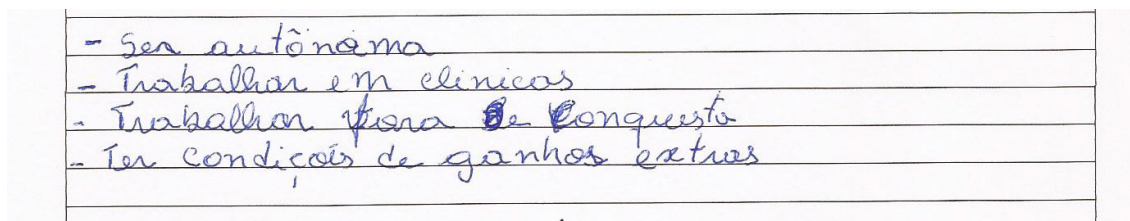 - Ser autônoma
- Trabalhar em clinicas
- Trabalhar fora de Conquista
- Ter condiçois de ganhos extras